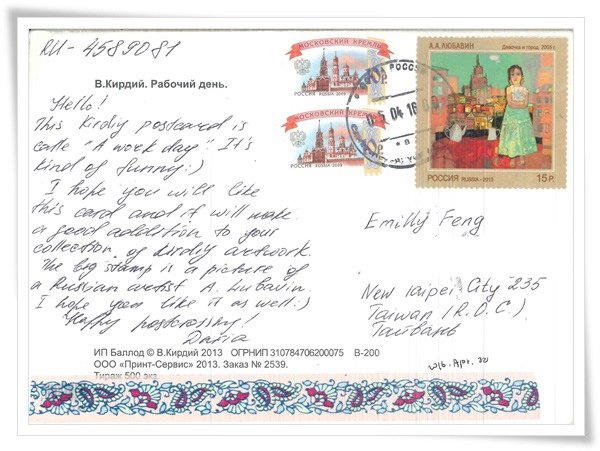 RU-4589081
В.Кирдий. Рабочий день.
Hello!
This Kirdiy postcard is
calle "A work day". It's
kind of funny:)
I hope you will like
this card and it will make
a good addition to your
collection of Kirdiy artwork.
The big stamp is a picture of
a Russian artist A. Lubavin.
I hope you like it as well:)
Happy postcrossing!
Daria
ИП Баллод © В.Кирдий 2013 ОГРНИП 310784706200075 В-200
ООО «Принт-Сервис» 2013. Заказ № 2539.
Тираж 500 экз
МОСКОВСКИЙ КРЕМЛЬ
10
РОССИЯ RUSSIA 2009
МОСКОВСКИЙ КРЕМЛЬ
10
РОССИЯ RUSSIA 2009
А.А.ЛЮБАВИН
Девочка и город. 2005 г.
РОССИЯ RUSSIA - 2013
15 Р.
04 16
Emilly Feng
New Taipei City 235
Taiwan (R.O.C.)
Тайвань